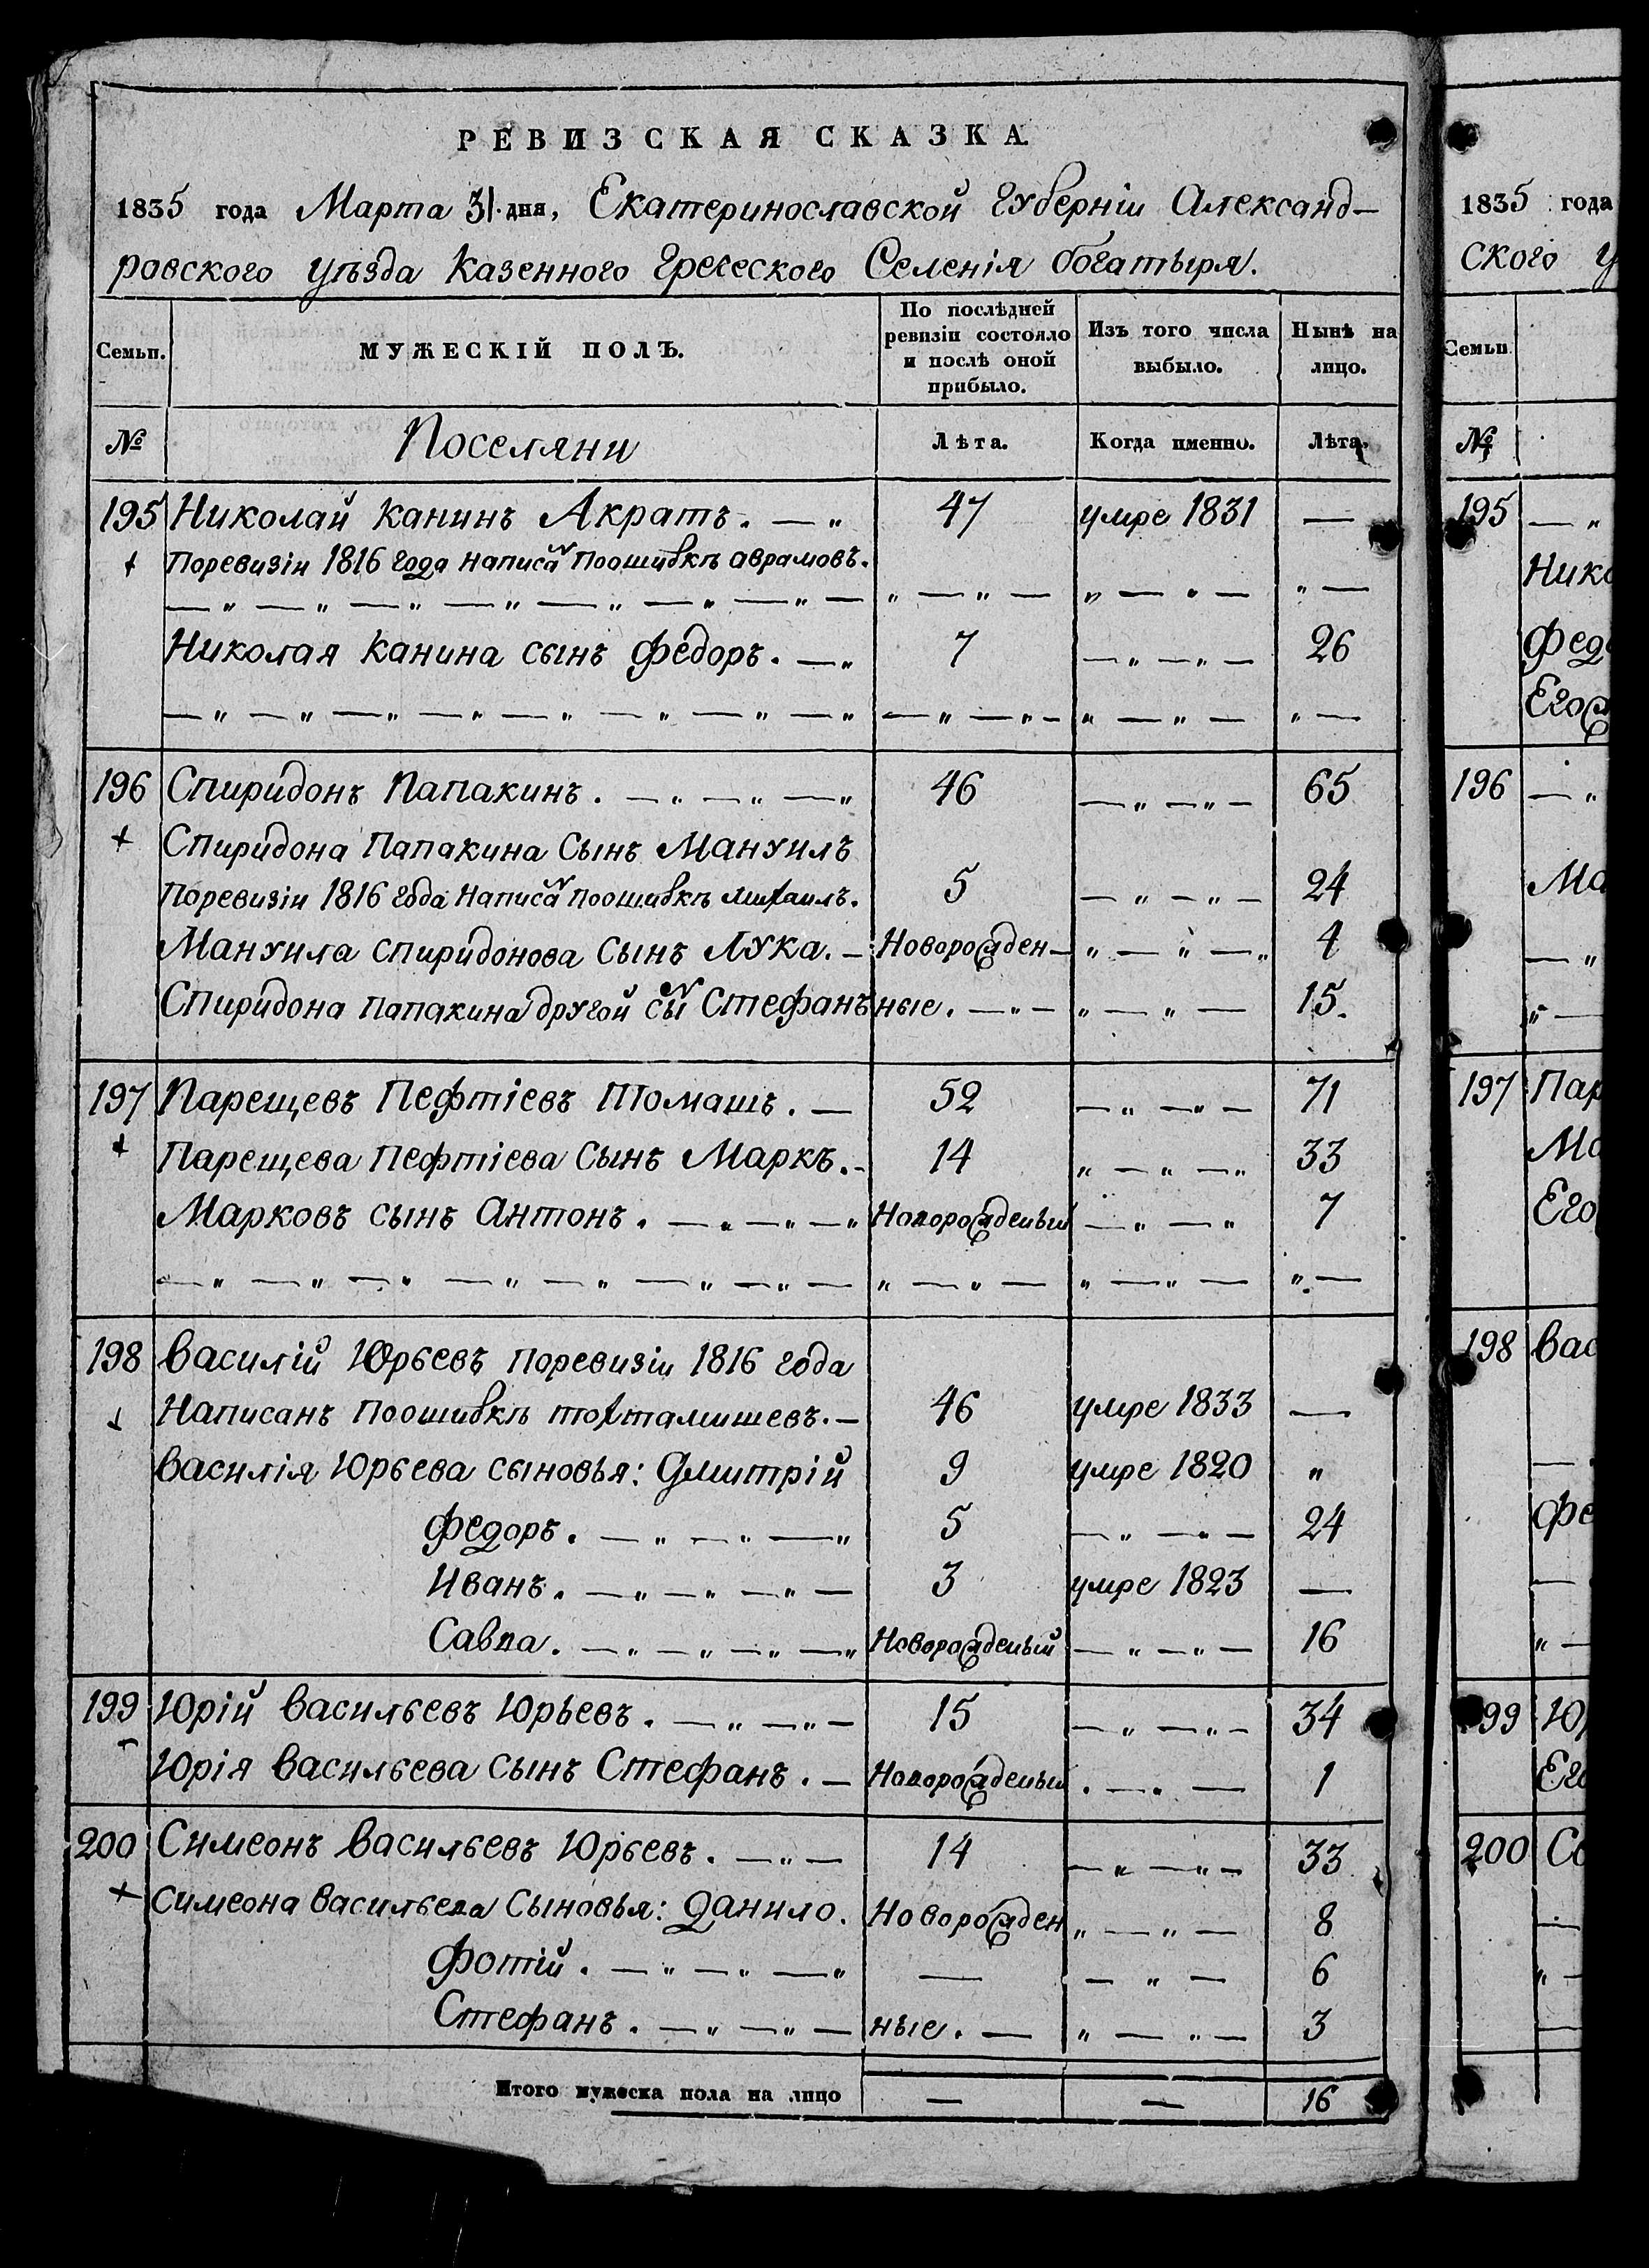 РЕВИЗСКАЯ СКАЗКА.
1835 года Марта 31. дня, Екатеринославской Губерніи Александ-
ровского уѣзда Казенного Греческого Селенія богатыря.
Семьи. МУЖЕСКІЙ ПОЛЪ. По послѣдней ревизіи состояло и послѣ оной прибыло. Изъ того числа выбыло. Нынѣ на лицо.
№ Поселяни Лѣта. Когда именно. Лѣта.
195 Николай Канинъ Акратъ. — „ 47 умре 1831 —
Поревизіи 1816 года написа Поошибкѣ аврамовъ.
Николая Канина сынъ Федоръ. — „ 7 — „ — „ — 26
196 Спиридонъ Папакинъ. — „ — „ — „ 46 — „ — „ — 65
Спиридона Папакина Сынъ Мануилъ
Поревизіи 1816 года написа поошибкѣ михаилъ. 5 — „ — „ — 24
Мануила спиридонова Сынъ Лука. — Новорожден- „ — „ — „ 4
Спиридона папакина другой сы Стефанъ ные. — „ — „ — „ — 15.
197 Парещевъ Пефтіевъ Томашъ. — 52 — „ — „ — 71
Парещева Пефтіева Сынъ Маркъ. - 14 „ — „ — „ 33
Марковъ сынъ Антонъ. — „ — „ — „ Новорожденый — „ — „ 7
198 Василій Юрьевъ поревизіи 1816 года
Написанъ поошибкѣ тохтамишевъ. — 46 умре 1833 —
Василія Юрьева сыновья: Дмитрій 9 умре 1820 „
Федоръ. — „ — „ — „ 5 — „ — „ — 24
Иванъ. — „ — „ — „ — 3 умре 1823 —
Савва. — „ — „ — „ — „ Новорожденый — „ — „ — 16
199 Юрій Васильевъ Юрьевъ. — „ — „ — 15 — „ — „ — 34
Юрія Васильева сынъ Стефанъ. — Новорожденый . — „ — 1
200 Симеонъ Васильевъ Юрьевъ. — „ — 14 — „ — „ — 33
Симеона Васильева Сыновья: Данило. Новорожден „ — „ — 8
Фотій. — „ — „ — „ — — „ — 6
Стефанъ. — „ — „ — ные. — „ — „ — 3
Итого мужеска пола на лицо — — 16
1835 года
ского у
Семьи
№
195 — „
Нико
Фед
Его
196 — „
Ма
— „
„ —
197 Пар
Ма
Его
198 Вас
Фе
„ —
199 Ю
Его
200 Си